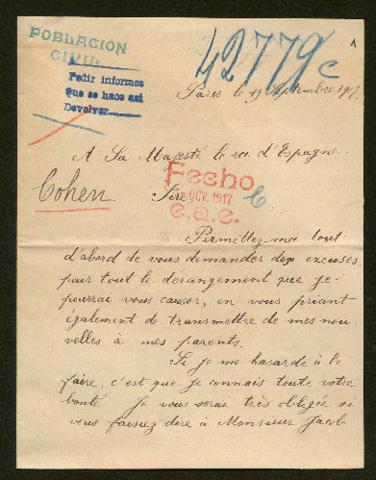 POBLACIÓN
CIVIL
Pedir informes
Que se haos así
Devolver
42779 c
1
Paris le 19 Septembre 1917.
A Sa Majesté le roi d'Espagne.
Cohen
Sire
Fecho
OCT. 1917
e.a.e.
Permettez-moi tout
d'abord de vous demander des excuses
pour tout le dérangement que je
pourrai vous causer, en vous priant
également de transmettre de mes nou-
velles à mes parents.
Si je me hasarde à le
faire, c'est que je connais toute votre
bonté. Je vous serai très obligée si
vous faisiez dire à Monsieur Jacob